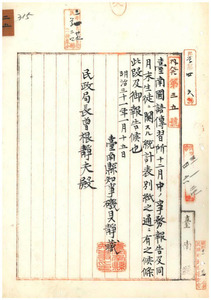 315
内庶第三五號
臺南國語傳習所十二月中ノ事務報告及同
月末生徒ニ關スル統計表別紙之通ニ有之候條
此段及御報告候也
明治三十一年一月十五日
臺南縣知事磯貝靜藏
民政局長曾根靜夫殿
臺南縣